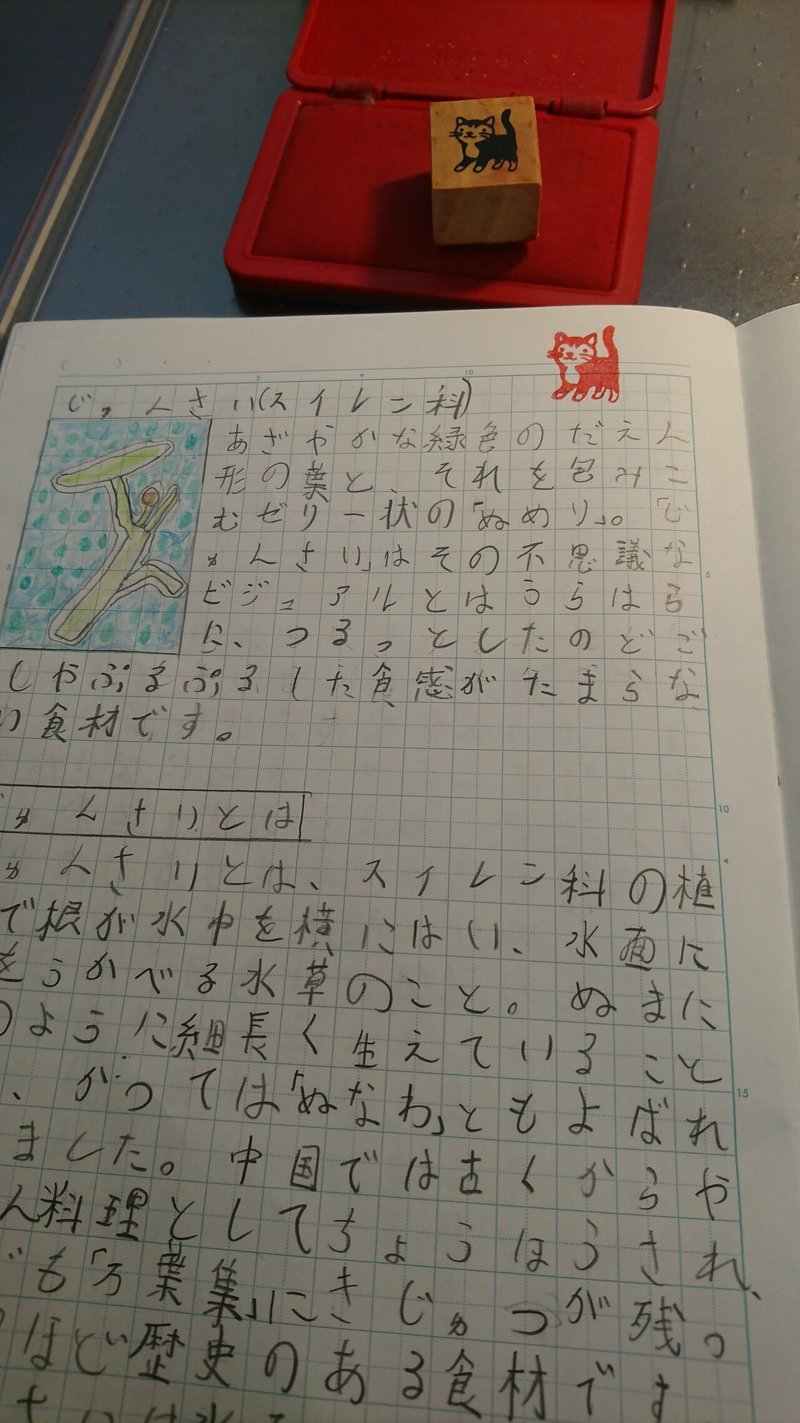 じゅんさい(スイレン科)
あざやかな緑色のだえん
形の葉と、それを包みこ
むゼリー状の「ぬめり」。「じ
ゅんさい」はその不思議な
ビジュアルとはうらはら
に、つるっとしたのどご
しやぷるぷるした食感がたまらな
い食材です。
ゅんさいとは
ゅんさいとは、スイレン科の植
で根が水中を横にはい、水面に
をうかべる水草のこと。ぬまに
のように細長く生えていること
、かつては「ぬなわ」ともよばれ
ました。中国では古くからや
ん料理としてちょうほうされ、
でも「万葉集」にきじゅつが残っ
ほど歴史のある食材でま
5
10
5
10
15